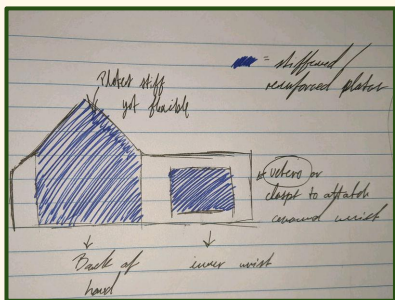 = stiffened /
reinforced plates
Plates stiff
yet flexible
velcro or
clasps to attatch
around wrist
Back of
hand
inner wrist